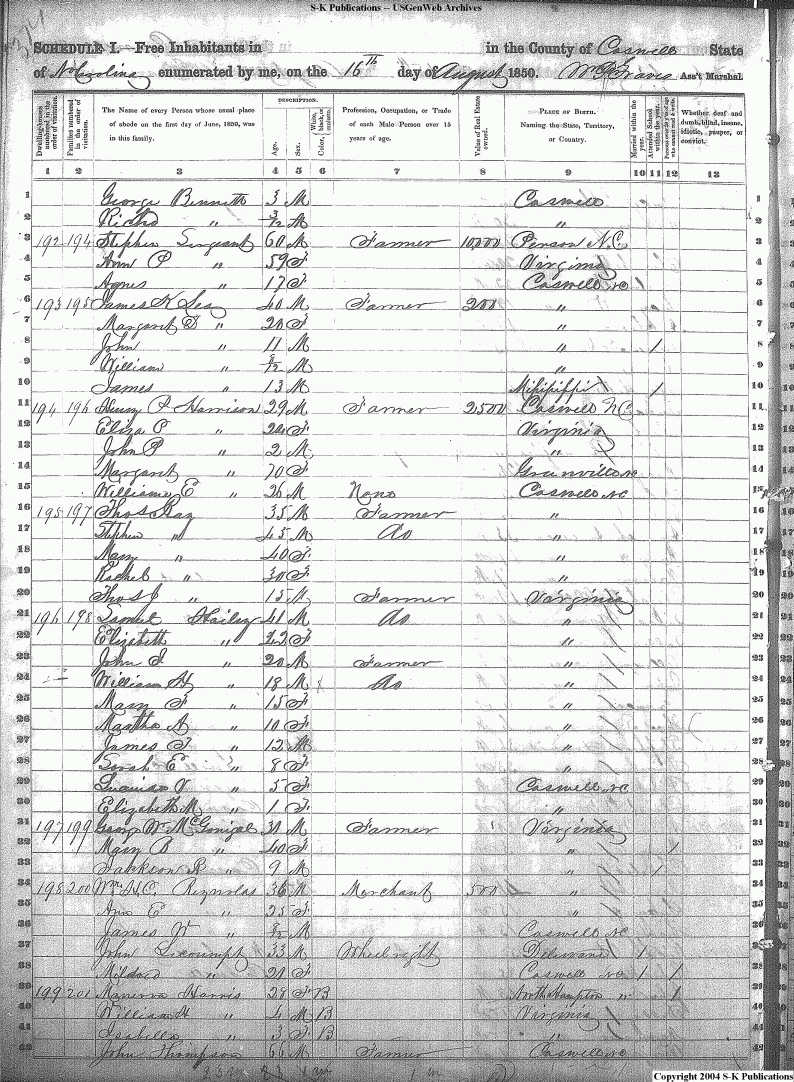 S-K Publications -- USGenWeb Archives
SCHEDULE I.- Free Inhabitants in in the County of Caswell State
of N Carolina enumerated by me, on the 16th day of August 1850. Wm P Graves Ass't Marshal
Dwelling-houses numbered in the order of visitation.
Families numbered in the order of visitation.
The Name of every Person whose usual place of abode on the first day of June, 1850, was in this family.
DESCRIPTION.
Age.
Sex.
Color, White, black, or mulatto.
Profession, Occupation, or Trade of each Male Person over 15 years of age.
Value of Real Estate owned.
PLACE OF BIRTH. Naming the State, Territory, or Country.
Married within the year.
Attended School within the year.
Persons over 20 y's of age who cannot read & write.
Whether deaf and dumb, blind, insane, idiotic, pauper, or convict.
1 2 3 4 5 6 7 8 9 10 11 12 13
1 George Bennett 3 M Caswell 1
2 Richd " 3/12 M " 2
3 192 194 Stephen Sergeant 60 M Farmer 10,000 Person N.C. 3
4 Ann P " 59 F Virginia 4
5 Agnes " 17 F Caswell NC 5
6 193 195 James K Lea 40 M Farmer 200 " 6
7 Margaret " 20 F " 7
8 John " 11 M " / 8
9 William " /12 M " 9
10 James " 13 M Missippi / 10
11 194 196 Henry F Harrison 29 M Farmer 2500 Caswell N.C 11
12 Eliza C " 24 F Virginia 12
13 John P " 2 M " 13
14 Margaret " 70 F Granville NC 14
15 William E " 26 M None Caswell NC 15
16 195 197 Thos Gay 35 M Farmer " 16
17 Stephen " 45 M do " 17
18 Mary " 40 F " 18
19 Rachel " 30 F " 19
20 Thos J " 15 M Farmer Virginia 20
21 196 198 Samuel Hailey 41 M do " 21
22 Elizabeth " 42 F " 22
23 John " 20 M Farmer " 23
24 William H " 18 M do " 24
25 Mary F " 15 F " 25
26 Martha A " 10 F " 26
27 James " 12 M " 27
28 Sarah E " 8 F " 28
29 V " 5 F Caswell NC 29
30 Elizabeth M " 1 F " 30
31 197 199 George W McGonigal 31 M Farmer Virginia 31
32 Mary B " 40 F " / 32
33 Jackson R " 9 M " / 33
34 198 200 Wm H.C. Reynolds 36 M Merchant 500 " 34
35 Ann E " 25 F " 35
36 James W " /12 M Caswell NC 36
37 John Licoumpt 33 M Wheelright Delaware / 37
38 Mildred " 21 F Caswell NC / / 38
39 199 201 Manerva Harris 28 F B Northampton / 39
40 William H " 4 M B Virginia 40
41 Isabella " 3 F B " 41
42 John Thompson 66 M Farmer Caswell NC 42
Copyright 2004 S-K Publications